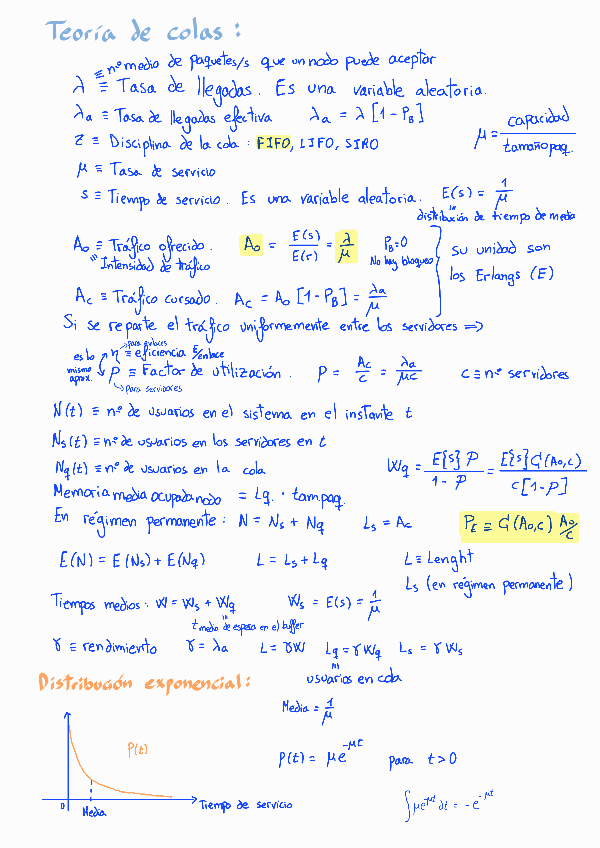 Teoría de colas:
≡ nº medio de paquetes/s que un nodo puede aceptar
λ ≡ Tasa de llegadas. Es una variable aleatoria.
λa ≡ Tasa de llegadas efectiva λa = λ [1 - PB]
μ = capacidad / tamaño paq.
Z ≡ Disciplina de la cola: FIFO, LIFO, SIRO
μ ≡ Tasa de servicio
s ≡ Tiempo de servicio. Es una variable aleatoria. E(s) = 1/μ
distribución de tiempo de media
Ao ≡ Tráfico ofrecido. Ao = E(s)/E(r) = λ/μ PB=0
≡ Intensidad de tráfico No hay bloqueo
su unidad son
los Erlangs (E)
Ac ≡ Tráfico cursado. Ac = Ao [1 - PB] = λa/μ
Si se reparte el tráfico uniformemente entre los servidores =>
para enlaces
es lo mismo aprox.
η ≡ eficiencia E/enlace
ρ ≡ Factor de utilización. ρ = Ac/c = λa/μc c ≡ nº servidores
para servidores
N(t) ≡ nº de usuarios en el sistema en el instante t
Ns(t) ≡ nº de usuarios en los servidores en t
Nq(t) ≡ nº de usuarios en la cola Wq = E{s} ρ / 1 - ρ = E{s} G(Ao,c) / c[1-ρ]
Memoria media ocupada nodo = Lq · tam paq.
En régimen permanente: N = Ns + Nq Ls = Ac PE ≡ G(Ao,c) Ao/c
E(N) = E(Ns) + E(Nq) L = Ls + Lq L ≡ Lenght
Ls (en régimen permanente)
Tiempos medios: W = Ws + Wq Ws = E(s) = 1/μ
t medio de espera en el buffer
γ ≡ rendimiento γ = λa L = γW Lq = γWq Ls = γWs
usuarios en cola
Distribución exponencial:
Media = 1/μ
P(t)
P(t) = μe^-μt para t > 0
0 Media Tiempo de servicio
∫ μe^-μt dt = -e^-μt